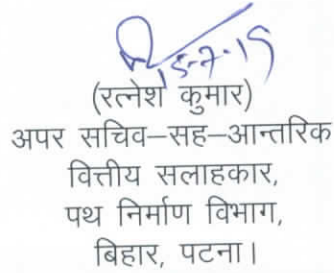 15-7-19
(रत्नेश कुमार)
अपर सचिव–सह–आन्तरिक
वित्तीय सलाहकार,
पथ निर्माण विभाग,
बिहार, पटना।